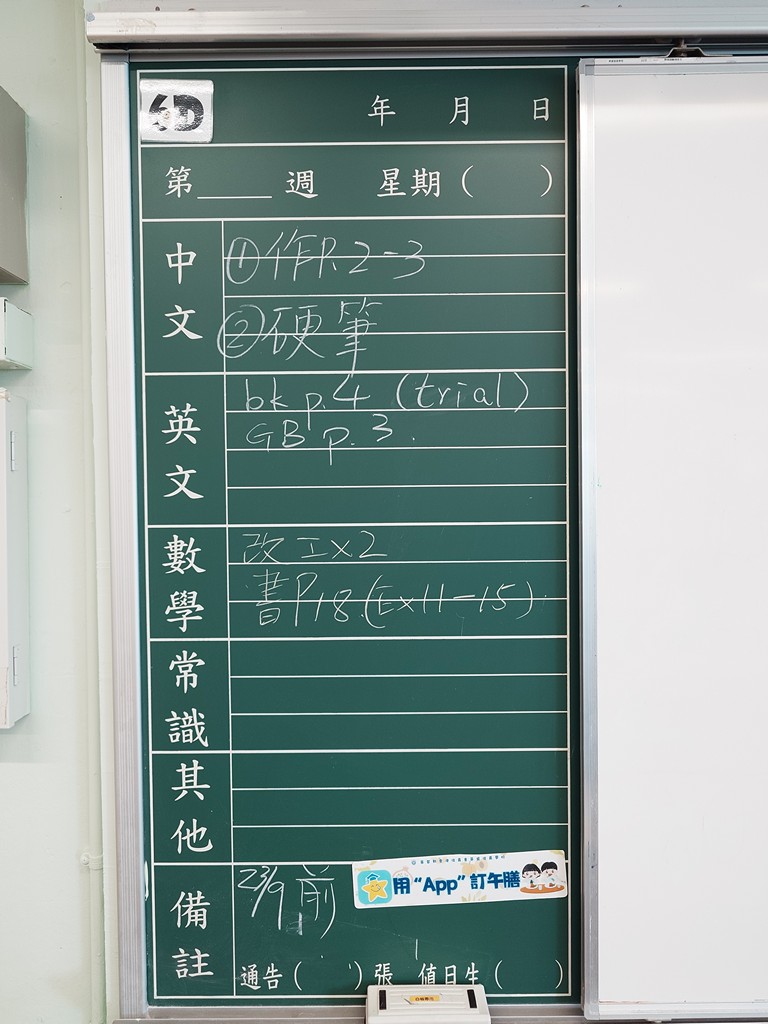 6D
年 月 日
第____週 星期( )
中文
①作P.2-3
②硬筆
英文
bk p.4 (trial)
GB p.3.
數學
改工x2
書P18.(Ex11-15)
常識
其他
備註
23/9前
用“App”訂午膳
通告( )張 值日生( )